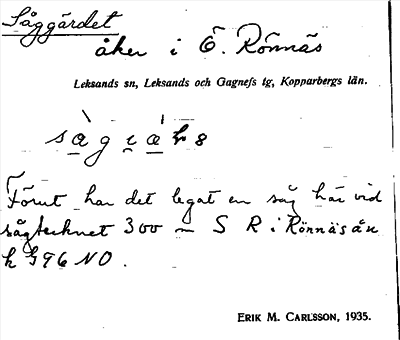 Såggärdet
åker i Ö. Rönnäs
Leksands sn, Leksands och Gagnefs tg, Kopparbergs län.
Förut har det legat en såg här vid
sågtecknet 300 m S R i Rönnäs ån
k 396 NO.
ERIK M. CARLSSON, 1935.